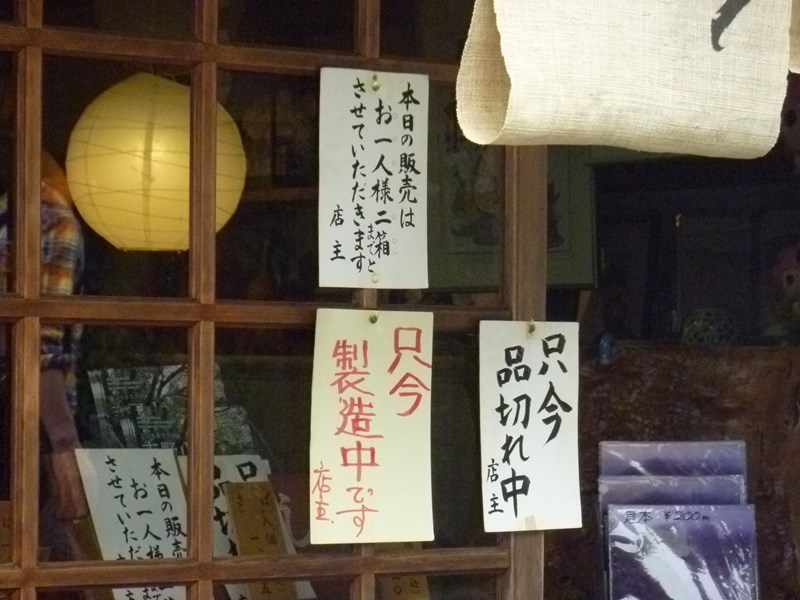 本日の販売は
お一人様二箱までと
させていただきます
店主
只今
製造中です
店主
只今
品切れ中
店主
本日の販
お一人様
させていただ
只
品切
見本 ¥200